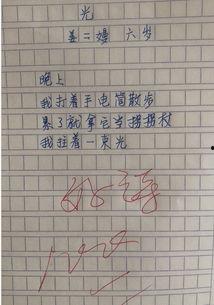 光
姜二嫚 六岁
晚上
我打着手电筒散步
累了就拿它当拐拐杖
我拄着一束光
100